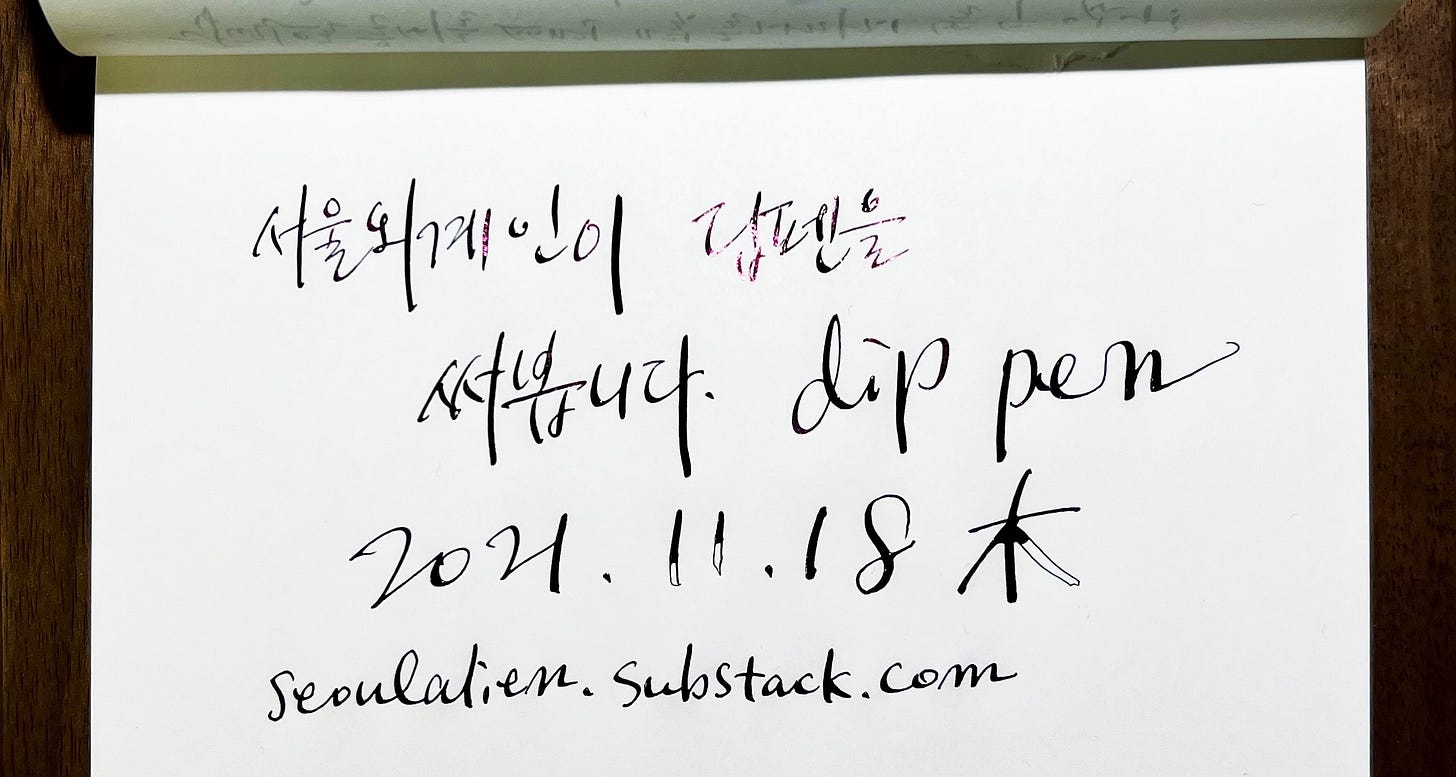 서울외계인이 딥펜을
써봅니다. dip pen
2021.11.18 木
seoulalien.substack.com